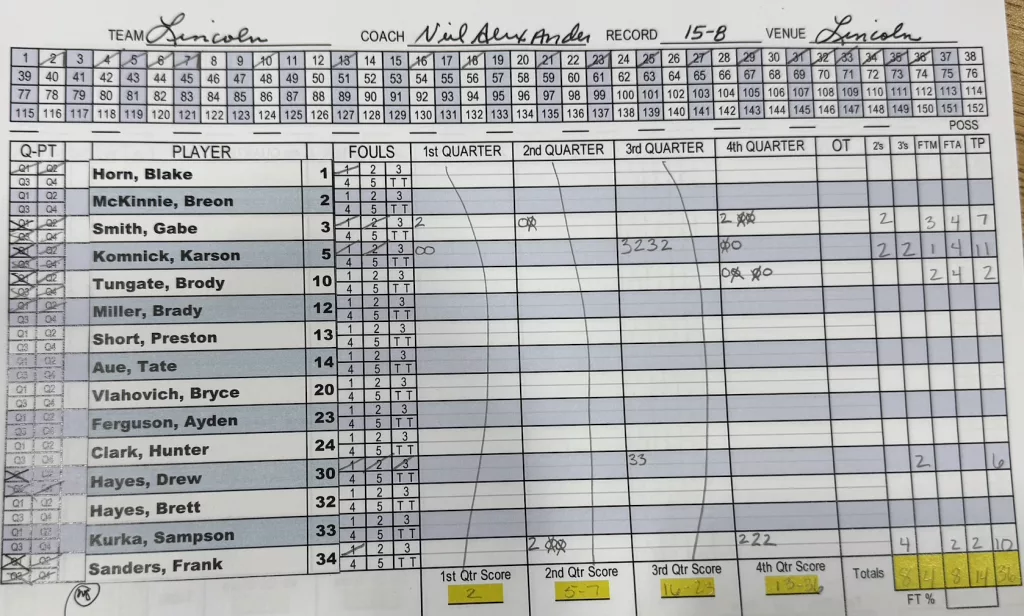 TEAM Lincoln COACH Neil Alexander RECORD 15-8 VENUE Lincoln
1 2 3 4 5 6 7 8 9 10 11 12 13 14 15 16 17 18 19 20 21 22 23 24 25 26 27 28 29 30 31 32 33 34 35 36 37 38
39 40 41 42 43 44 45 46 47 48 49 50 51 52 53 54 55 56 57 58 59 60 61 62 63 64 65 66 67 68 69 70 71 72 73 74 75 76
77 78 79 80 81 82 83 84 85 86 87 88 89 90 91 92 93 94 95 96 97 98 99 100 101 102 103 104 105 106 107 108 109 110 111 112 113 114
115 116 117 118 119 120 121 122 123 124 125 126 127 128 129 130 131 132 133 134 135 136 137 138 139 140 141 142 143 144 145 146 147 148 149 150 151 152
POSS
Q-PT PLAYER FOULS 1st QUARTER 2nd QUARTER 3rd QUARTER 4th QUARTER OT 2's 3's FTM FTA TP
Q1 Q2 Horn, Blake 1 1 2 3
Q3 Q4 4 5 TT
Q1 Q2 McKinnie, Breon 2 1 2 3
Q3 Q4 4 5 TT
Smith, Gabe 3 1 2 3 2 00 2 00 2 3 4 7
4 5 TT
Komnick, Karson 5 1 2 3 00 3232 00 2 2 1 4 11
4 5 TT
Tungate, Brody 10 1 2 3 00 00 2 4 2
4 5 TT
Miller, Brady 12 1 2 3
4 5 TT
Q1 Q2 Short, Preston 13 1 2 3
Q3 Q4 4 5 TT
Q1 Q2 Aue, Tate 14 1 2 3
Q3 Q4 4 5 TT
Q1 Q2 Vlahovich, Bryce 20 1 2 3
Q3 Q4 4 5 TT
Q1 Q2 Ferguson, Ayden 23 1 2 3
Q3 Q4 4 5 TT
Q1 Q2 Clark, Hunter 24 1 2 3
Q3 Q4 4 5 TT
Hayes, Drew 30 1 2 3 33 2 6
4 5 TT
Q1 Q2 Hayes, Brett 32 1 2 3
Q3 Q4 4 5 TT
Q1 Q2 Kurka, Sampson 33 1 2 3
Q3 Q4 4 5 TT
Sanders, Frank 34 1 2 3 2 00 222 4 2 2 10
4 5 TT
1st Qtr Score 2nd Qtr Score 3rd Qtr Score 4th Qtr Score Totals 8 4 8 14 36
2 5-7 16-23 13-36
FT %